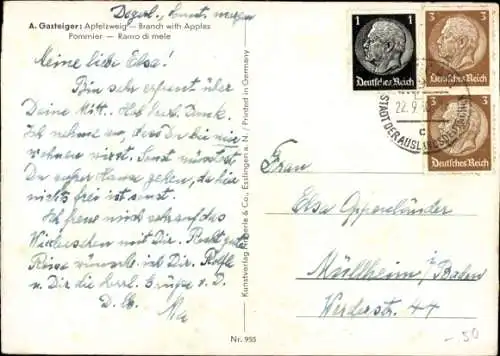 A. Gasteiger: Apfelzweig — Branch with Apples
Pommier — Ramo di mele
Meine liebe Elsa!
Bin sehr erfreut über
Deine Mitt. Hab herzl. Dank.
Ich nehme an, dass Du bei mir
wohnen wirst. Sonst müsstest
Du ausser Haus gehen, da hier
nichts frei ist sonst.
Ich freue mich sehr auf das
Wiedersehen mit Dir. Recht gute
Reise wünsche ich Dir.
u. Dir die herzl. Grüsse v. D.
D. Lb.
Kunstverlag & Co., Esslingen a. N. / Printed in Germany
Nr. 955
1
Deutsches Reich
3
Deutsches Reich
3
Deutsches Reich
22.9.
c
STADT DER AUSLANDSDEUTSCHEN
Frau
Elsa
Müllheim i/Baden
Werderstr. 44
-50